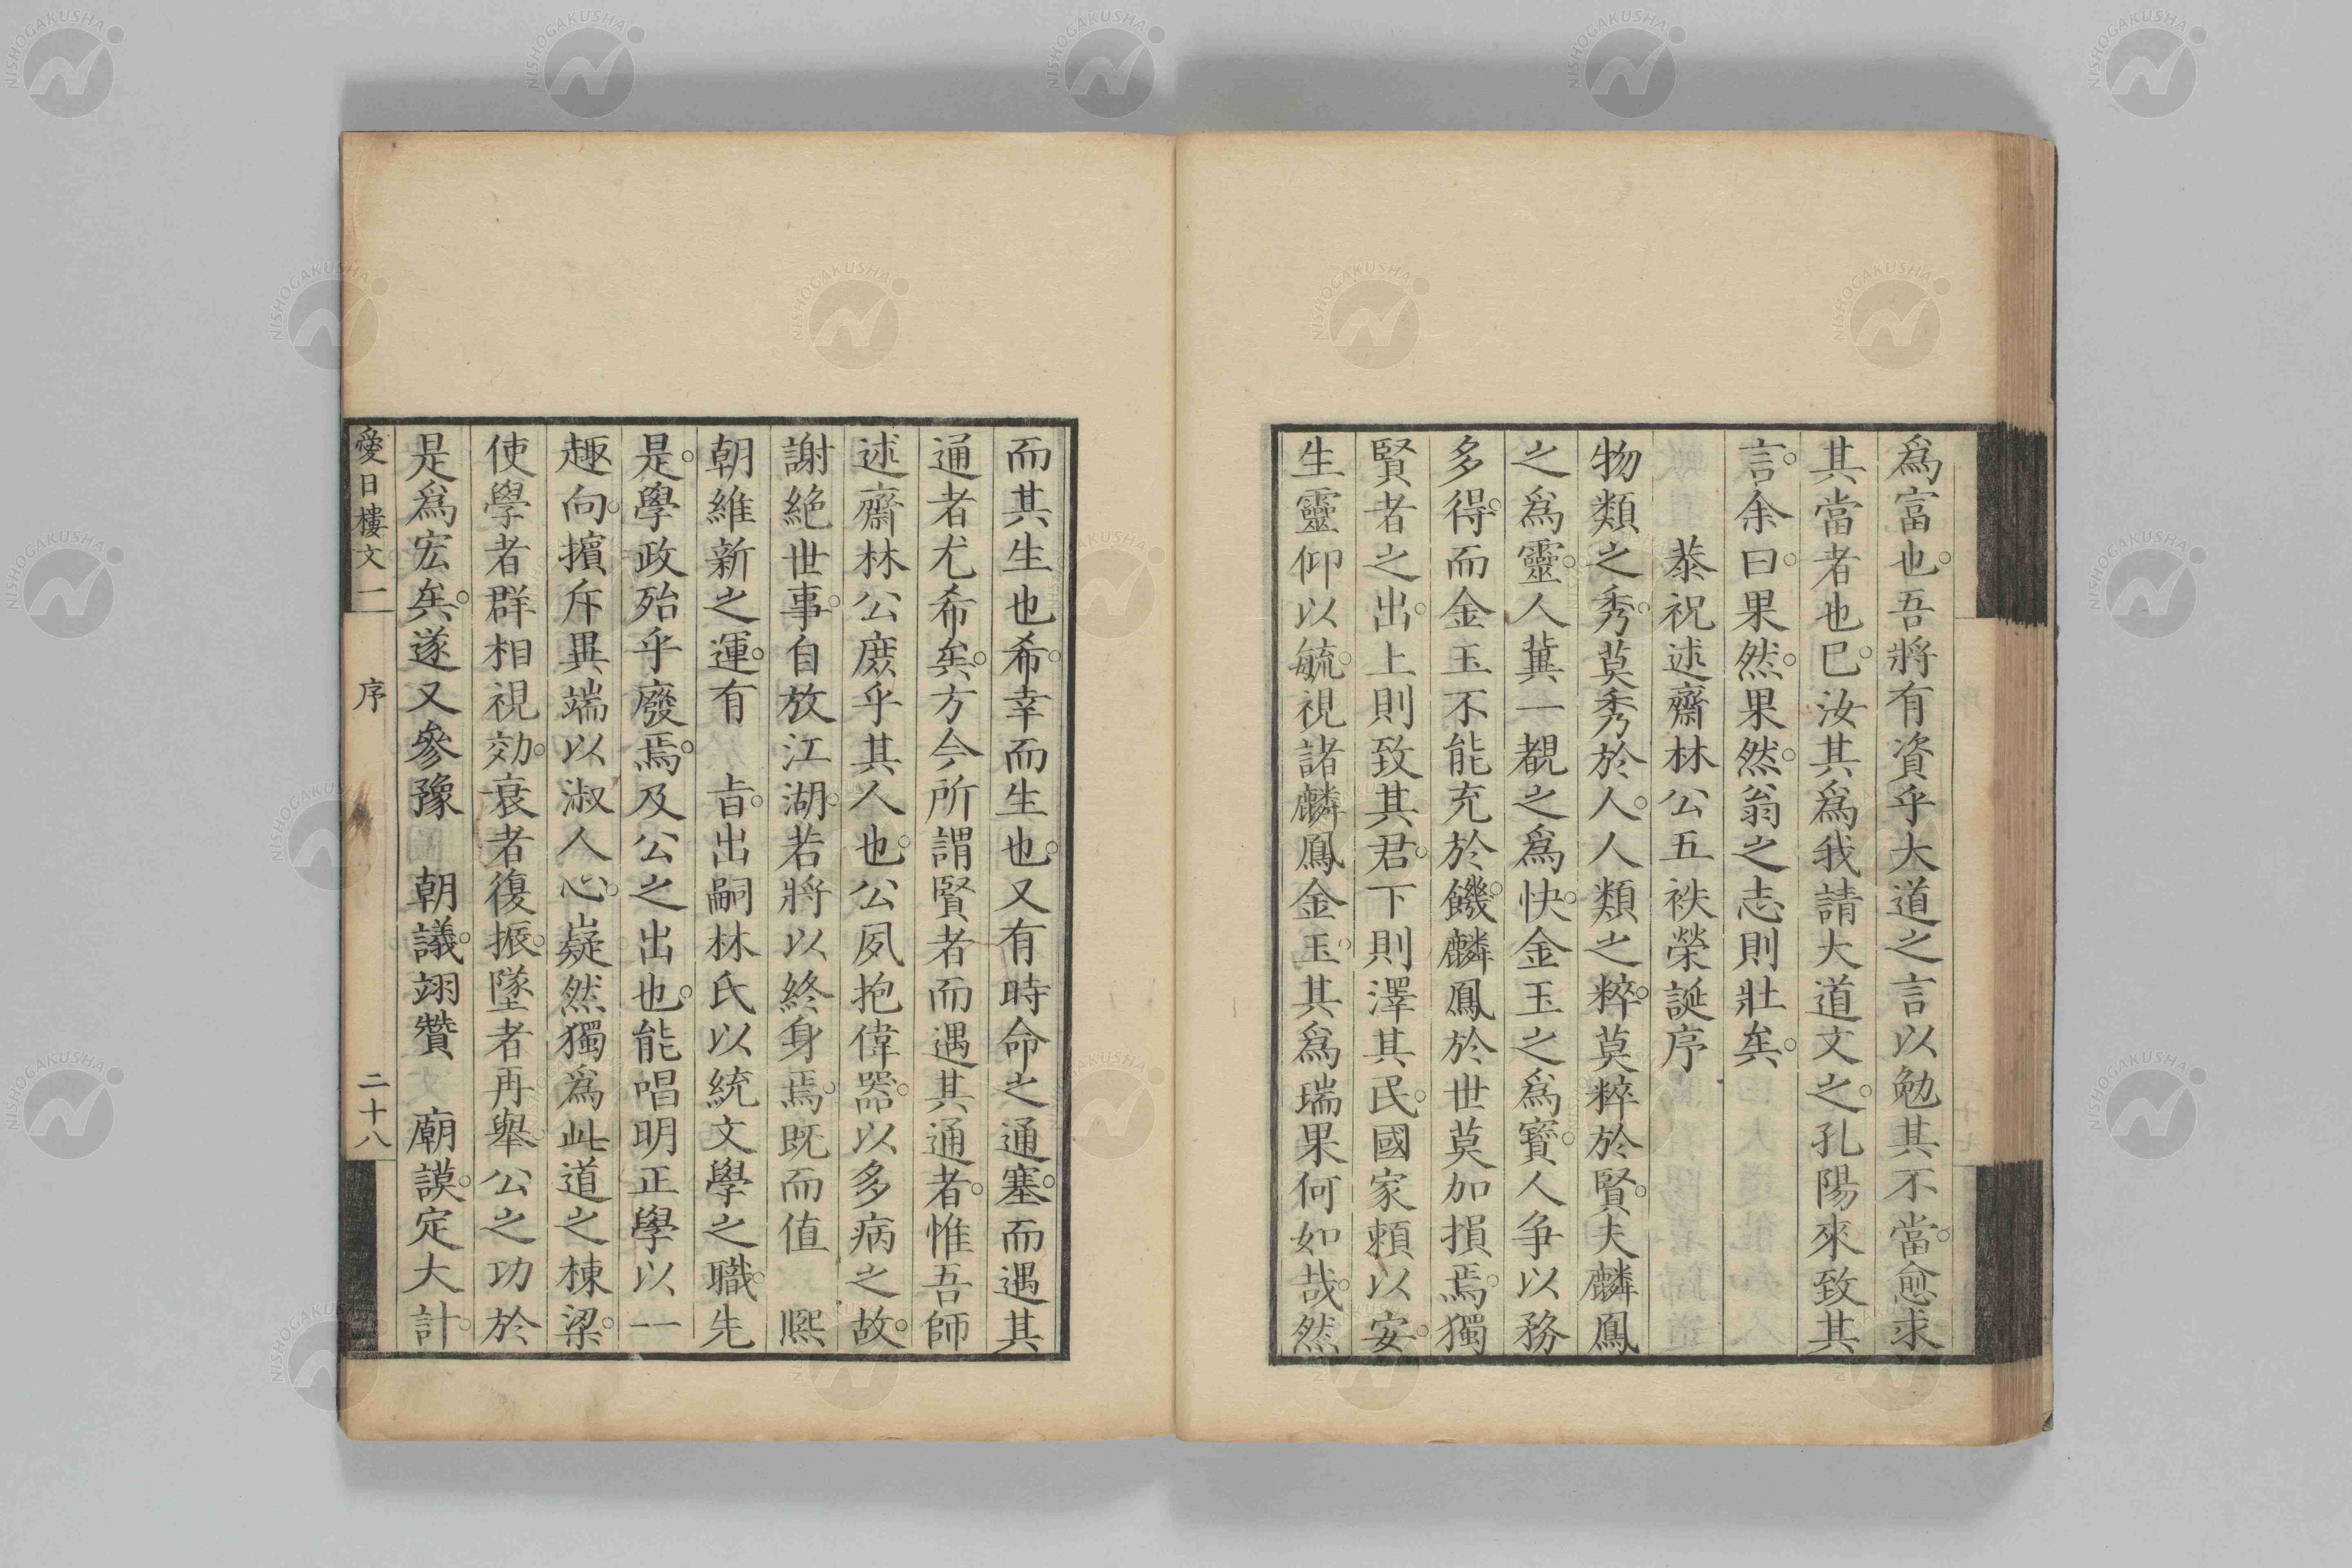 爲富也。吾將有資乎大道之言以勉其不當。愈求
其當者也。巳汝其爲我請大道文之。孔陽來致其
言。余曰。果然。果然。翁之志則壯矣。
恭祝述齋林公五袟榮誕序
物類之秀。莫秀於人。人類之粹。莫粹於賢。夫麟鳳
之爲靈。人冀一覩之爲快。金玉之爲寶。人争以務
多得。而金玉不能充於饑。麟鳳於世莫加損焉。獨
賢者之出。上則致其君。下則澤其民。國家頼以安。
生靈仰以毓。視諸麟鳳金玉。其爲瑞果何如哉。然
而其生也希。幸而生也。又有時命之通塞。而遇其
通者尤希矣。方今所謂賢者而遇其通者。惟吾師
述齋林公庶乎其人也。公夙抱偉器。以多病之故。
謝絶世事。自放江湖。若將以終身焉。既而值 熈
朝維新之運。有 旨。出嗣林氏以統文學之職。先
是。學政殆乎廢焉。及公之出也。能唱明正學以一
趣向。擯斥異端以淑人心。嶷然獨爲此道之棟梁。
使學者群相視効。衰者復振。墜者再舉公之功於
是爲宏矣。遂又參豫 朝議。翊贊 廟謨。定大計。
愛日樓文 二 序 二十八
NISHOGAKUSHA